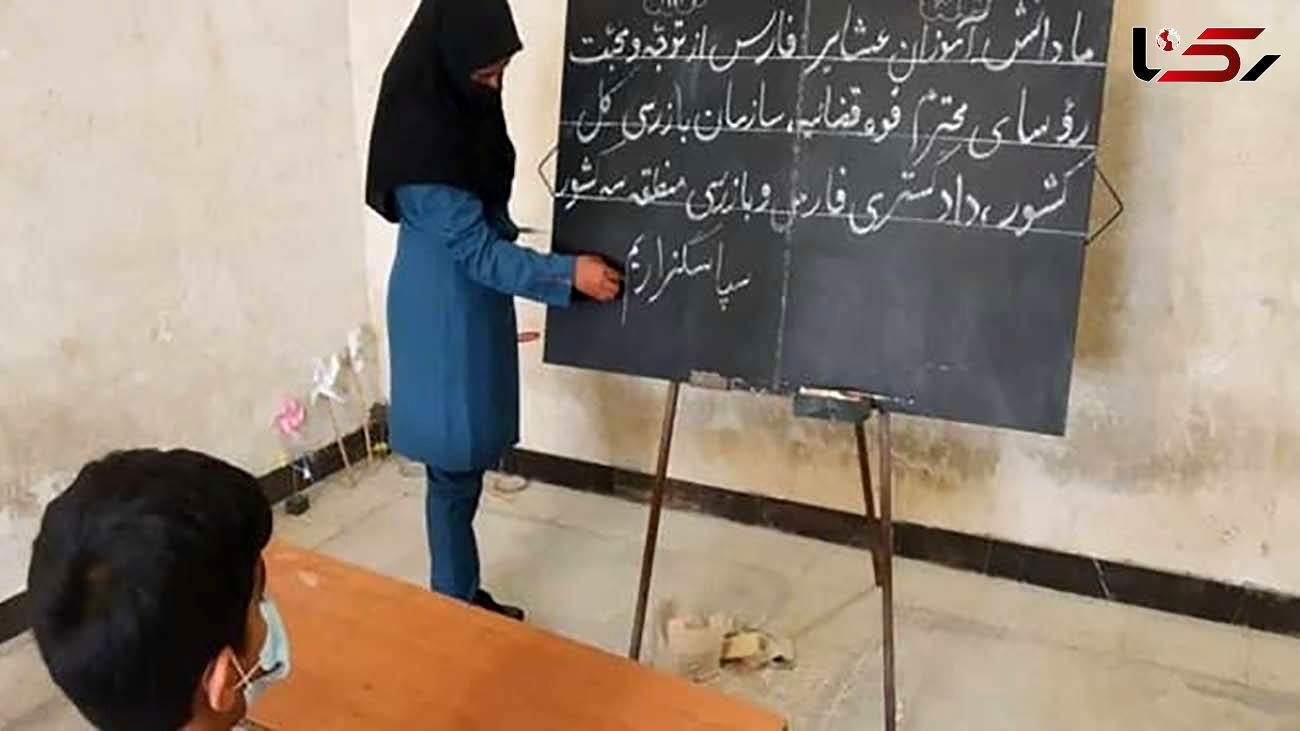 رکنا
ما دانش آموزان عشایر فارس از توجّه و محبّت
رؤسای محترم قوه قضائیه، سازمان بازرسی کل
کشور، دادگستری فارس و بازرسی منطقه سه کشور
سپاسگزاریم